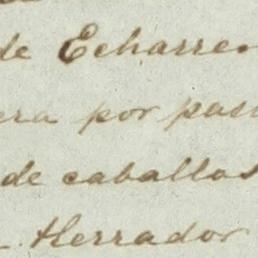 de Echarre
era por pas
de caballos
Herrador